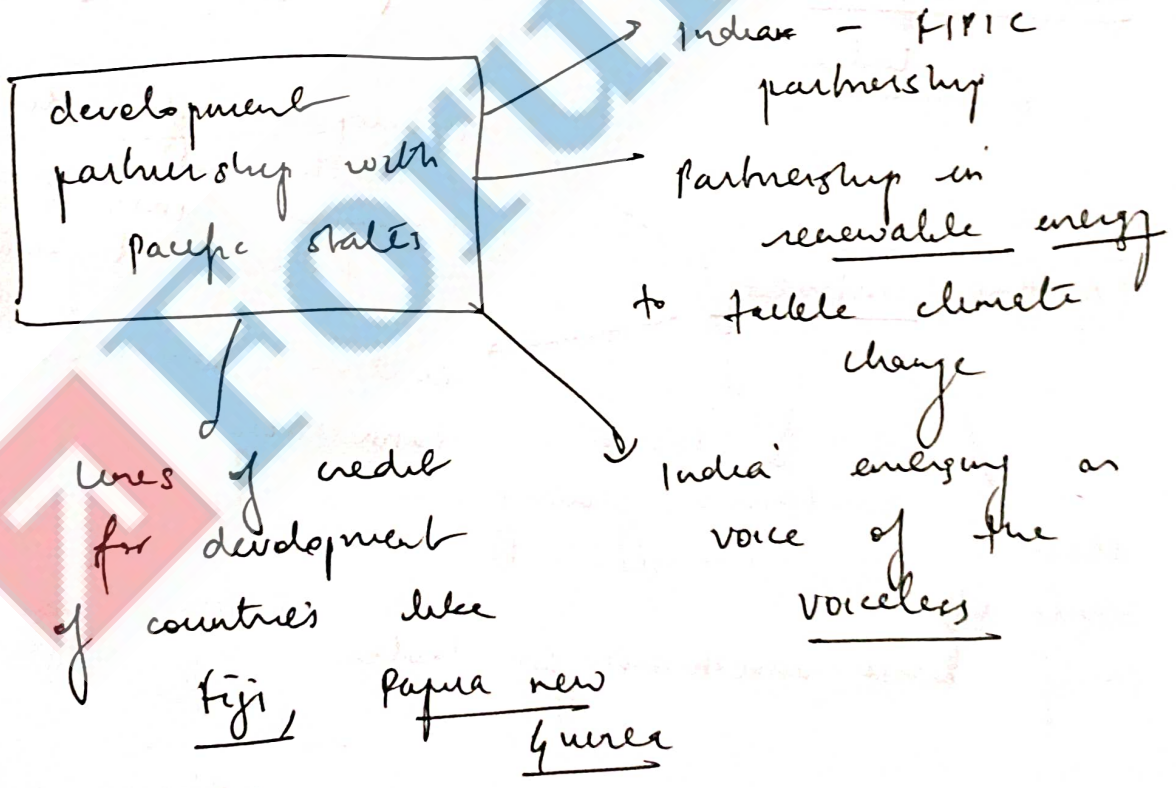 development
partnership with
pacific states
India - FIPIC
partnership
Partnership in
renewable energy
to tackle climate
change
India emerging as
voice of the
voiceless
lines of credit
for development
of countries like
Fiji, Papua new
Guinea
Foru